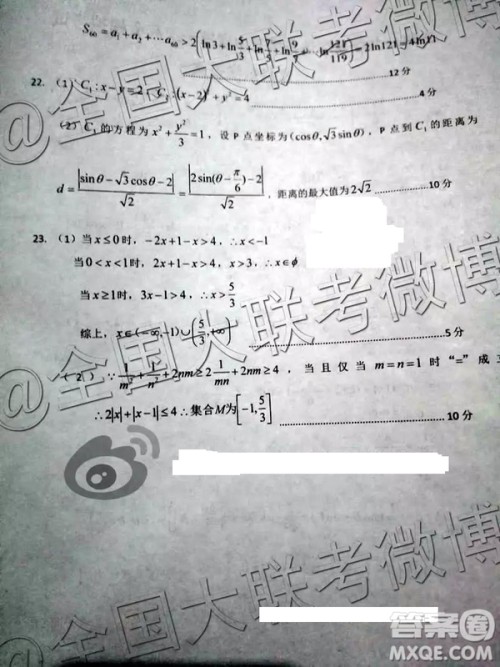 S₆₀=a₁+a₂+⋯a₆₀>2(ln3+ln5/3+ln7/5+ln9/7+⋯ln121/119)=2ln121=4ln11
12分
22. (1) C₁:x-y=2, C₂:(x-2)²+y²=4 4分
(2) C₁的方程为x²+y²/3=1，设P点坐标为(cosθ,√3sinθ)，P点到C₁的距离为
d=|sinθ-√3cosθ-2|/√2=|2sin(θ-π/6)-2|/√2，距离的最大值为2√2 10分
23. (1) 当x≤0时，-2x+1-x>4，∴x<-1
当0<x<1时，2x+1-x>4，x>3，∴x∈ϕ
当x≥1时，3x-1>4，∴x>5/3
综上，x∈(-∞,-1)∪(5/3,+∞) 5分
(2) ∵1/m²+1/n²+2nm≥2 1/mn+2nm≥4，当且仅当m=n=1时“=”成立
∴2|x|+|x-1|≤4∴集合M为[-1,5/3] 10分
@全国大联考微博
@全国大联考微博
答案圈
MXQE.COM